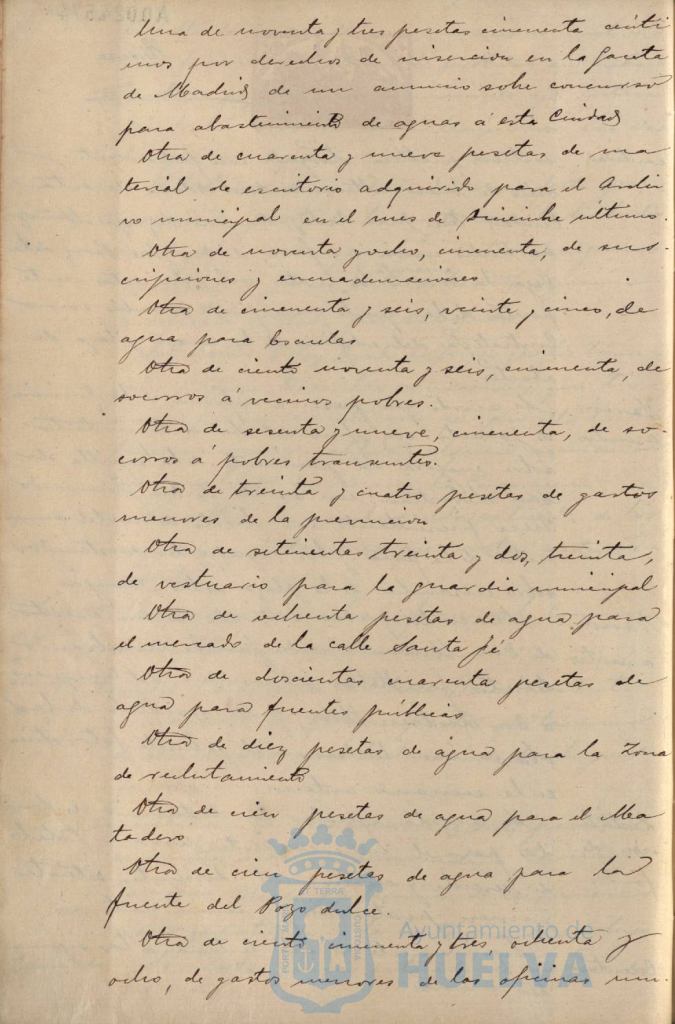 Una de noventa y tres pesetas cincuenta cénti
mos por derechos de inserción en la Gaceta
de Madrid de un anuncio sobre concurso
para abastecimiento de aguas á esta Ciudad
Otra de cuarenta y nueve pesetas de ma
terial de escritorio adquirido para el Archi
vo municipal en el mes de Diciembre último.
Otra de noventa y ocho, cincuenta, de sus-
cripciones y encuadernaciones
Otra de cincuenta y seis, veinte y cinco, de
agua para Escuelas
Otra de ciento noventa y seis, cincuenta, de
socorros á vecinos pobres.
Otra de sesenta y nueve, cincuenta, de so-
corros á pobres transeuntes.
Otra de treinta y cuatro pesetas de gastos
menores de la prevencion
Otra de setecientas treinta y dos, treinta,
de vestuario para la guardia municipal
Otra de ochenta pesetas de agua para
el mercado de la calle Santa Fé
Otra de doscientas cuarenta pesetas de
agua para fuentes públicas
Otra de diez pesetas de agua para la Zona
de reclutamiento
Otra de cien pesetas de agua para el Ma
tadero
Otra de cien pesetas de agua para la
fuente del Pozo dulce.
Otra de ciento cincuenta y tres, ochenta y
ocho, de gastos menores de las oficinas mu-
Ayuntamiento de
HUELVA